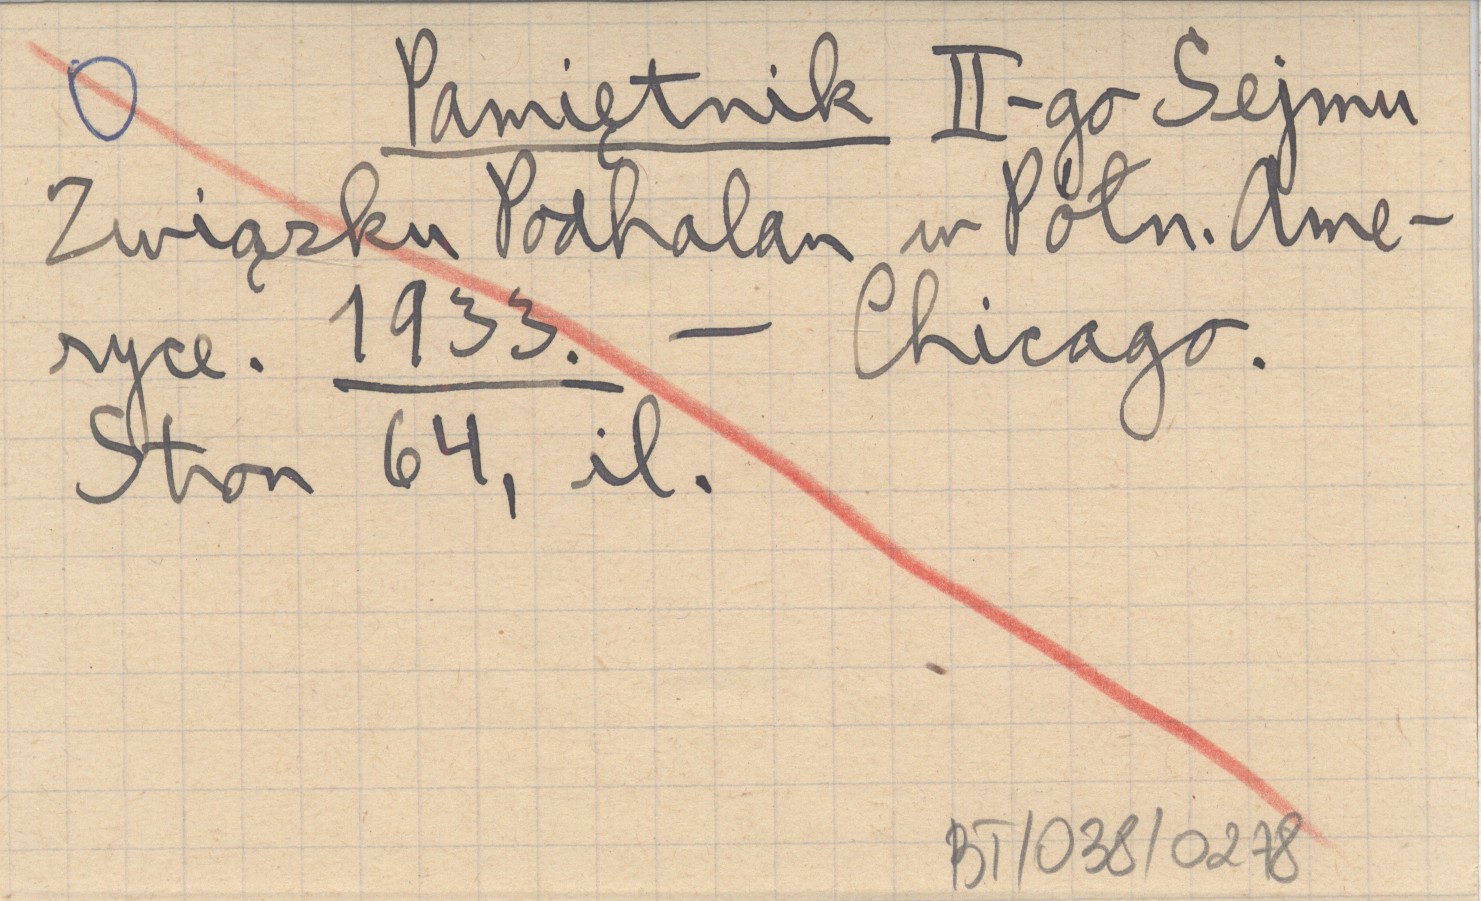 Pamiętnik II-go Sejmu
Związku Podhalan w Półn. Ame-
ryce. 1933. — Chicago.
Stron 64, il.
BT/038/0278